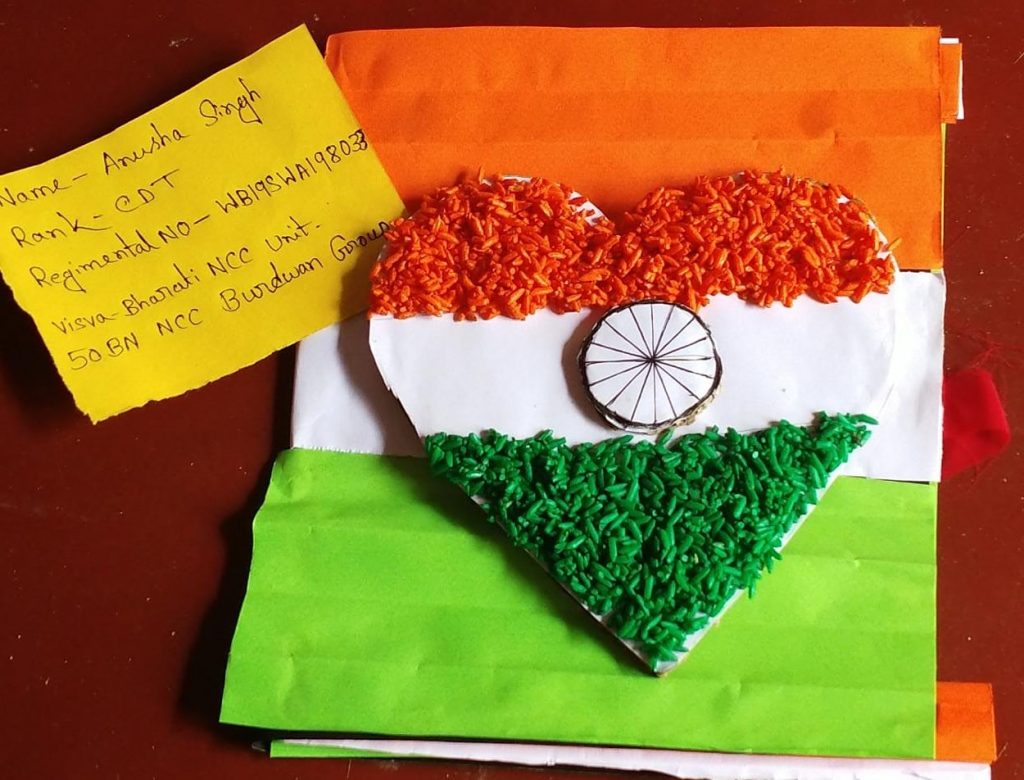 Name - Anusha Singh
Rank - CDT
Regimental NO - WB19SWA198033
Visva-Bharati NCC Unit.
50 BN NCC Burdwan Group